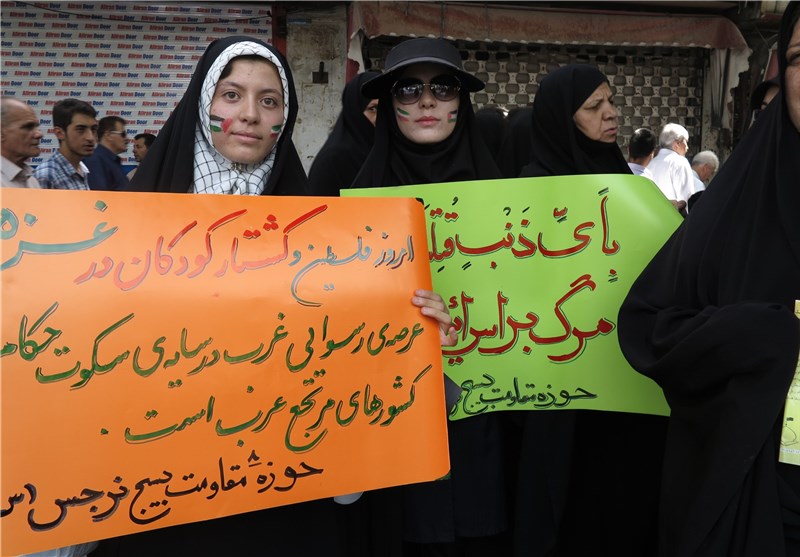 امروز فلسطین و کشتار کودکان در غزه
عرصه‌ی رسوایی غرب در سایه‌ی سکوت حکام
کشورهای مرتجع عرب است.
حوزه ۸ مقاومت بسیج نرجس
بِأَیِّ ذَنْبٍ قُتِلَ
مرگ بر اسرائی
حوزه مقاومت بسیج